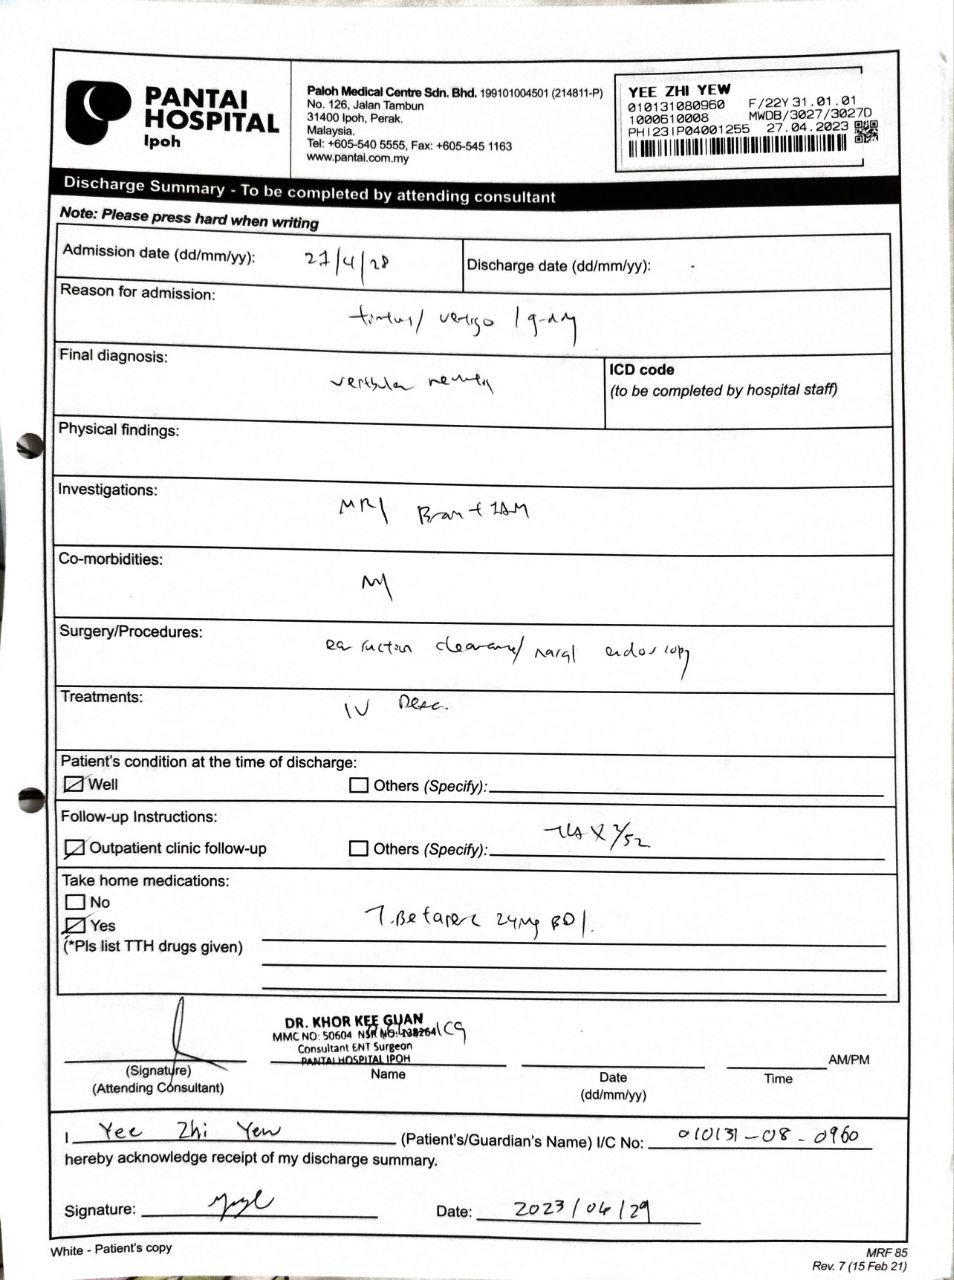 PANTAI
HOSPITAL
Ipoh
Paloh Medical Centre Sdn. Bhd. 199101004501 (214811-P)
No. 126, Jalan Tambun
31400 Ipoh, Perak.
Malaysia.
Tel: +605-540 5555, Fax: +605-545 1163
www.pantai.com.my
YEE ZHI YEW
010131080960 F/22Y 31.01.01
1000610008 MWDB/3027/3027D
PHI23IP04001255 27.04.2023
Discharge Summary - To be completed by attending consultant
Note: Please press hard when writing
Admission date (dd/mm/yy): Discharge date (dd/mm/yy): -
Reason for admission:
vertigo
Final diagnosis:
ICD code
(to be completed by hospital staff)
Physical findings:
Investigations:
MRI Brain + IAM
Co-morbidities:
Surgery/Procedures:
ear suction clearance/ nasal endoscopy
Treatments:
IV
Patient's condition at the time of discharge:
Well Others (Specify):
Follow-up Instructions:
Outpatient clinic follow-up Others (Specify): TCA X 2/52
Take home medications:
No
Yes T. Betaserc 24mg BD
(*Pls list TTH drugs given)
DR. KHOR KEE GUAN
MMC NO: 50604 NSR NO: 138264
Consultant ENT Surgeon
PANTAI HOSPITAL IPOH
(Signature) Name Date Time AM/PM
(Attending Consultant) (dd/mm/yy)
I Yee Zhi Yew (Patient's/Guardian's Name) I/C No: 010131-08-0960
hereby acknowledge receipt of my discharge summary.
Signature: Date: 2023/04/29
White - Patient's copy
MRF 85
Rev. 7 (15 Feb 21)